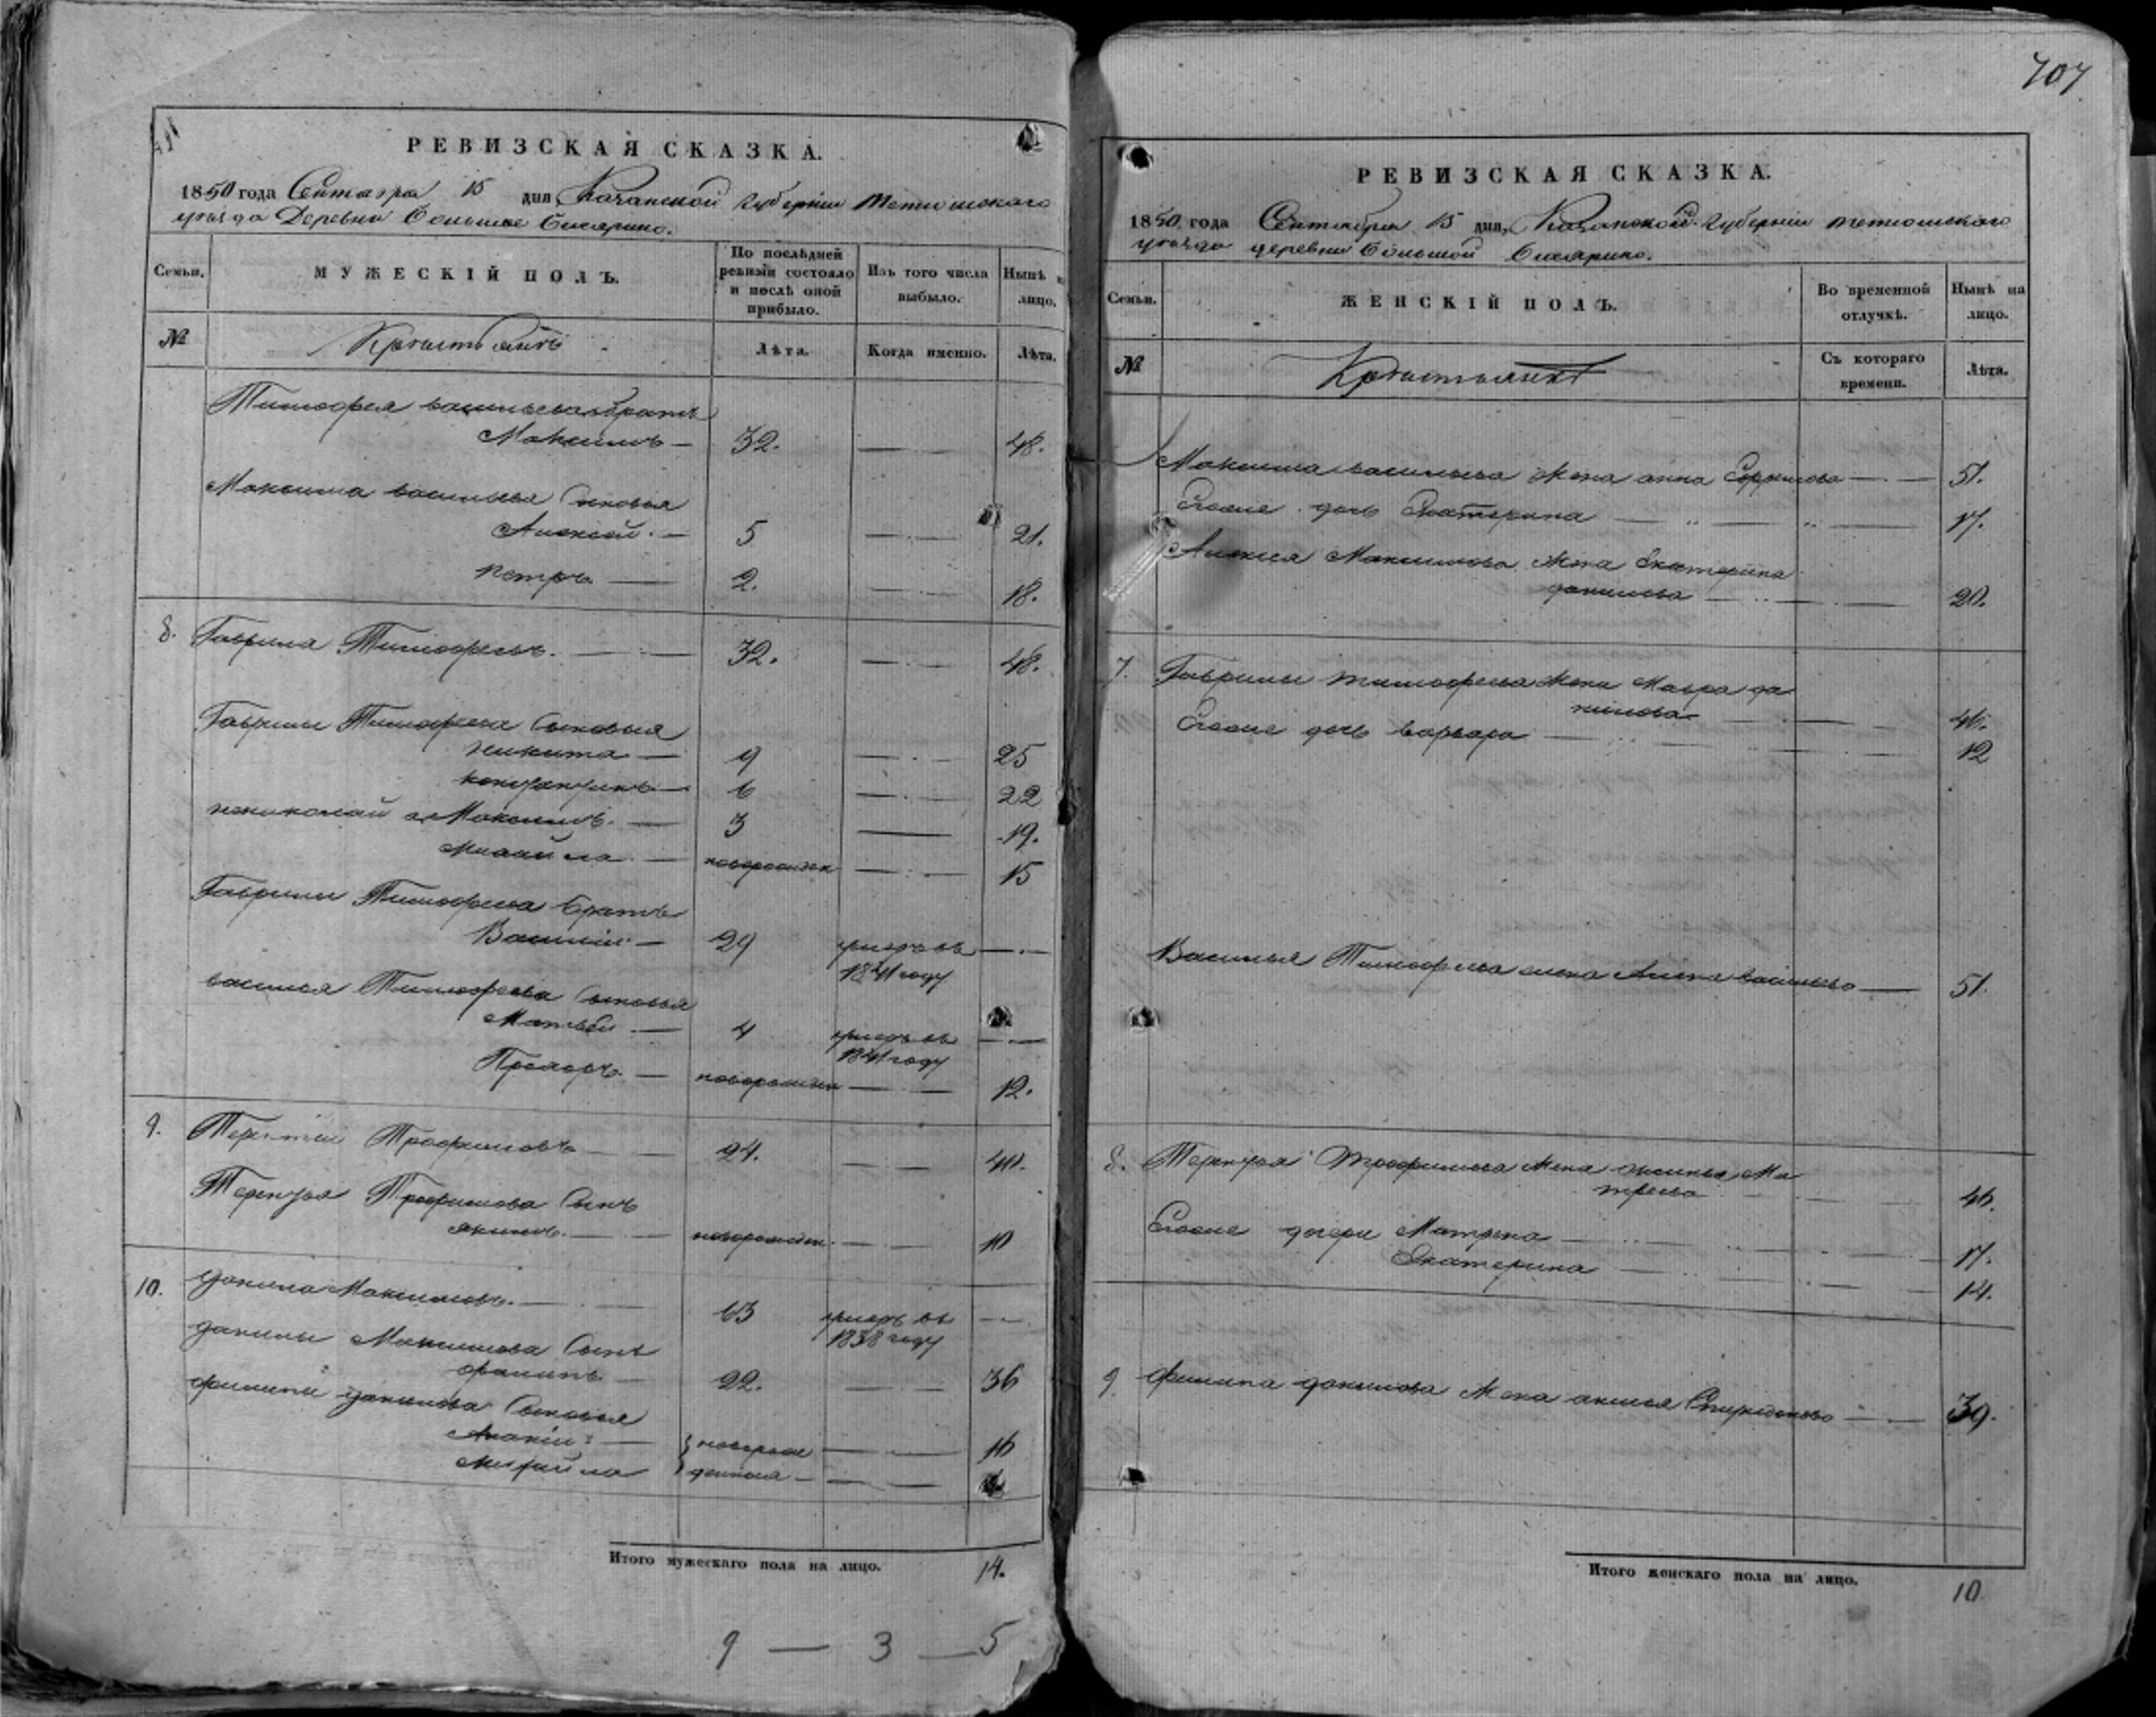 РЕВИЗСКАЯ СКАЗКА.
1850 года Сентября 15 дня, Казанской губернии Тетюшского
уезда Деревни Большое
Семьи.
МУЖЕСКІЙ ПОЛЪ.
По послѣдней ревизіи состояло и послѣ оной прибыло.
Изъ того числа выбыло.
Нынѣ на лицо.
№
Крестьянъ
Лѣта.
Когда именно.
Лѣта.
Тимофея Васильева братъ
Максимъ — 32. — 48.
Максима Васильева сыновья
Алексей — 5 — 21.
Петръ — 2. — 18.
8. Гаврила Тимофеевъ. — 32. — 48.
Гаврилы Тимофеева сыновья
Никита — 9 — 25
6 — 22
Максимъ — 3 — 19.
Михайла — новорожден — 15
Гаврилы Тимофеева братъ
Василій — 29 умеръ въ —
1841 году
Василья Тимофеева сыновья
Матвей — 4 умеръ въ —
1841 году
Прохоръ — новорожден — 12.
9. Терентий Трофимовъ — 24. — 40.
Терентья Трофимова сынъ
Якимъ — новорожден. — 10
10. Данила Максимовъ — 63 умеръ въ —
1838 году
Данилы Максимова сынъ
Филипъ — 22. — 36
Филипа Данилова сыновья
— новорож — 16
Михайла — денныя —
Итого мужескаго пола на лицо. 14.
9 — 3 — 5
707
РЕВИЗСКАЯ СКАЗКА.
1850 года Сентября 15 дня, Казанской губерніи Тетюшского
уезда деревни Большой
Семьи.
ЖЕНСКІЙ ПОЛЪ.
Во временной отлучкѣ.
Нынѣ на лицо.
№
Крестьянъ
Съ котораго времени.
Лѣта.
Максима Васильева жена Анна — 51.
Егоже дочь Екатерина — 17.
Алексея Максимова жена Екатерина
Данилова — 20.
7. Гаврилы Тимофеева жена Мавра Да
нилова — 46.
Егоже дочь Варвара — 12
Василья Тимофеева жена Анна Васильева — 51.
8. Терентья Трофимова жена
46.
Егоже дочери Матрена — 17.
Екатерина — 14.
9. Филипа Данилова жена Спиридонова — 39.
Итого женскаго пола на лицо. 10